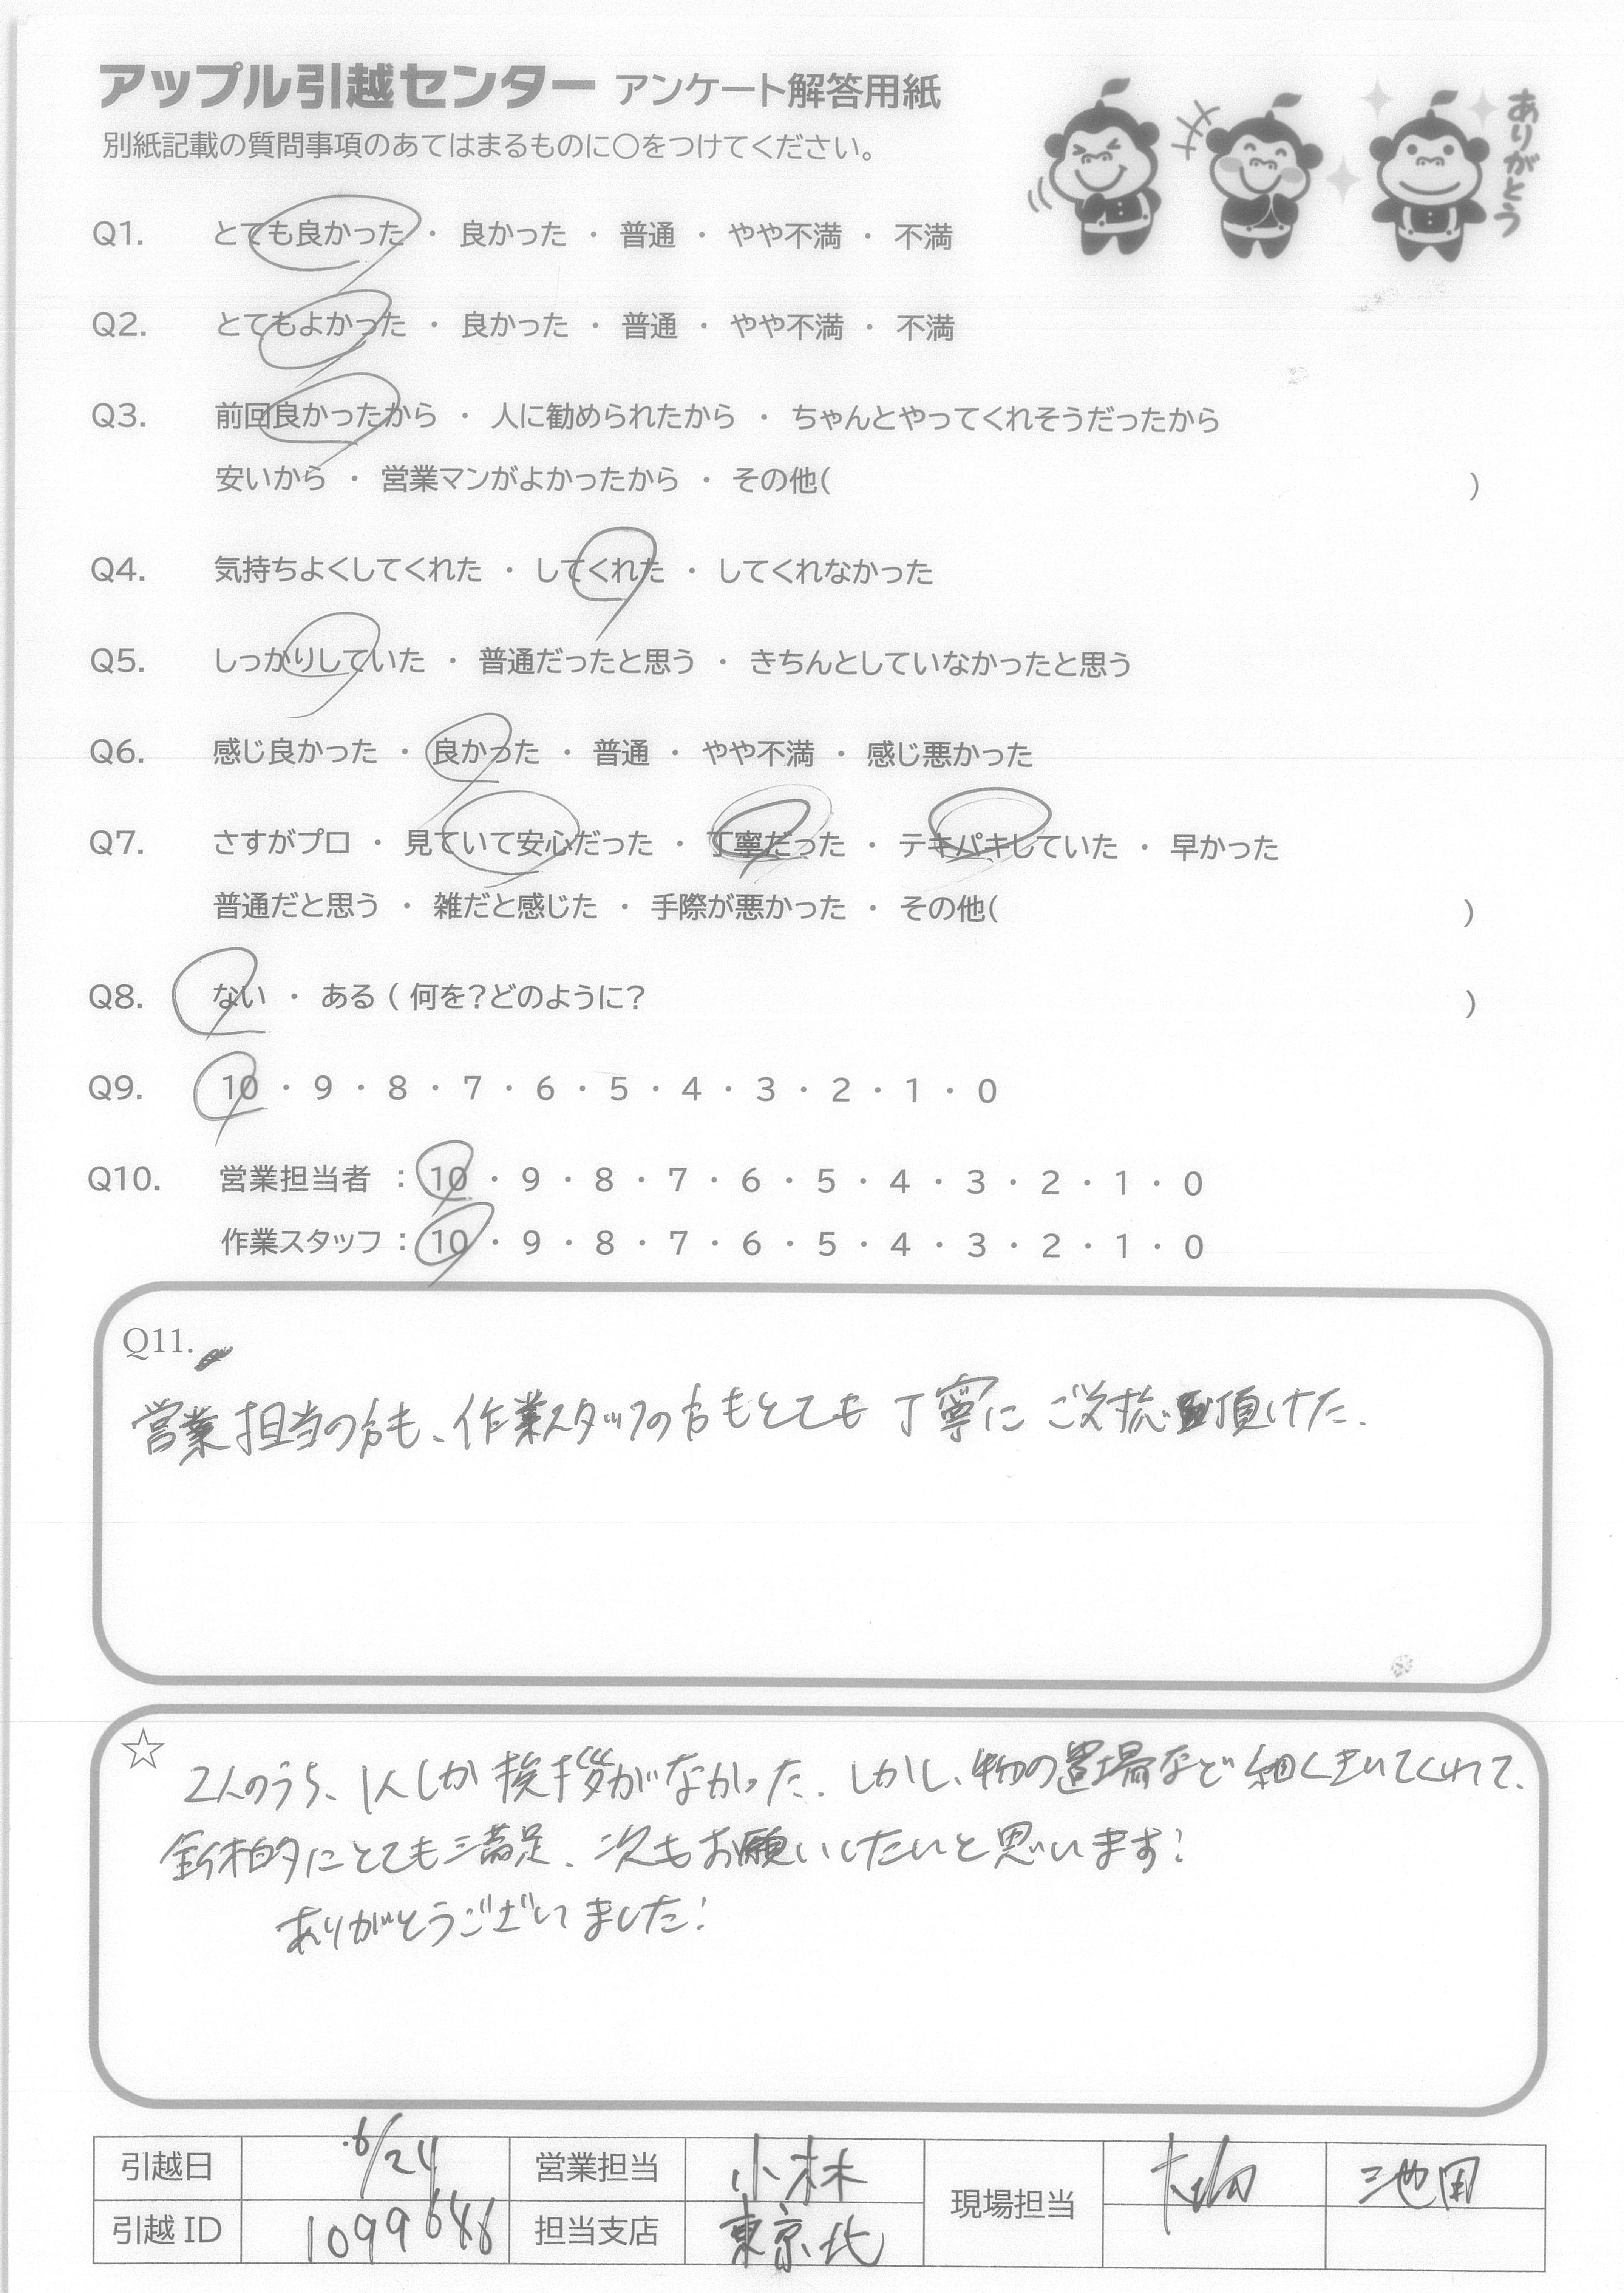 アップル引越センター アンケート解答用紙
別紙記載の質問事項のあてはまるものに○をつけてください。
ありがとう
Q1. とても良かった ・ 良かった ・ 普通 ・ やや不満 ・ 不満
Q2. とてもよかった ・ 良かった ・ 普通 ・ やや不満 ・ 不満
Q3. 前回良かったから ・ 人に勧められたから ・ ちゃんとやってくれそうだったから
安いから ・ 営業マンがよかったから ・ その他( )
Q4. 気持ちよくしてくれた ・ してくれた ・ してくれなかった
Q5. しっかりしていた ・ 普通だったと思う ・ きちんとしていなかったと思う
Q6. 感じ良かった ・ 良かった ・ 普通 ・ やや不満 ・ 感じ悪かった
Q7. さすがプロ ・ 見ていて安心だった ・ 丁寧だった ・ テキパキしていた ・ 早かった
普通だと思う ・ 雑だと感じた ・ 手際が悪かった ・ その他( )
Q8. ない ・ ある ( 何を?どのように? )
Q9. 10 ・ 9 ・ 8 ・ 7 ・ 6 ・ 5 ・ 4 ・ 3 ・ 2 ・ 1 ・ 0
Q10. 営業担当者 : 10 ・ 9 ・ 8 ・ 7 ・ 6 ・ 5 ・ 4 ・ 3 ・ 2 ・ 1 ・ 0
作業スタッフ : 10 ・ 9 ・ 8 ・ 7 ・ 6 ・ 5 ・ 4 ・ 3 ・ 2 ・ 1 ・ 0
Q11.
営業担当の方も、作業スタッフの方もとても丁寧にご対応頂けた.
☆ 2人のうち、1人しか挨拶がなかった. しかし、物の置場など細くきいてくれて、
全体的にとても満足. 次もお願いしたいと思います!
ありがとうございました!
引越日 6/24 営業担当 小林 現場担当 池田
引越ID 1099646 担当支店 東京北